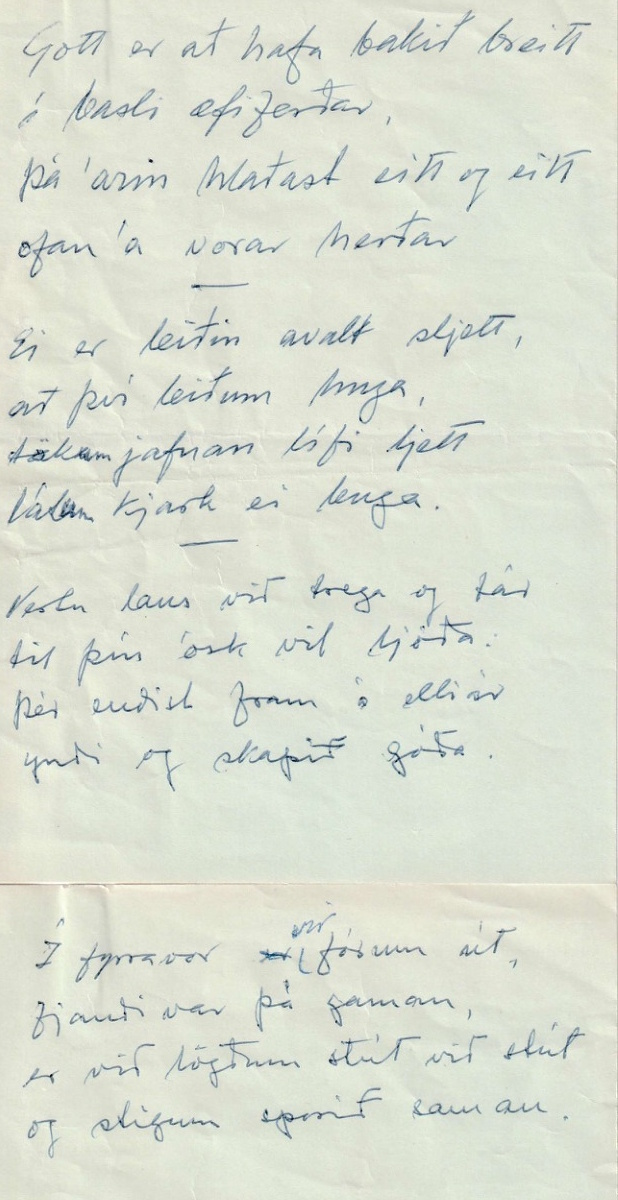 Gott er að hafa bakið breitt
í basli æfigerðar,
þá árin hlaðast eitt og eitt
ofan á vorar herðar
Ei er leiðin avalt sljett,
að því leiðum huga,
tökum jafnan lífi ljett
látum kjark ei buga.
Vertu laus við trega og tár
til þín ósk vil ljóða:
þér endist fram á elliár
yndi og skapið góða.
Í fyrravor við fórum út,
fjandi var þá gaman,
er við lögðum stút við stút
og stigum sporið saman.